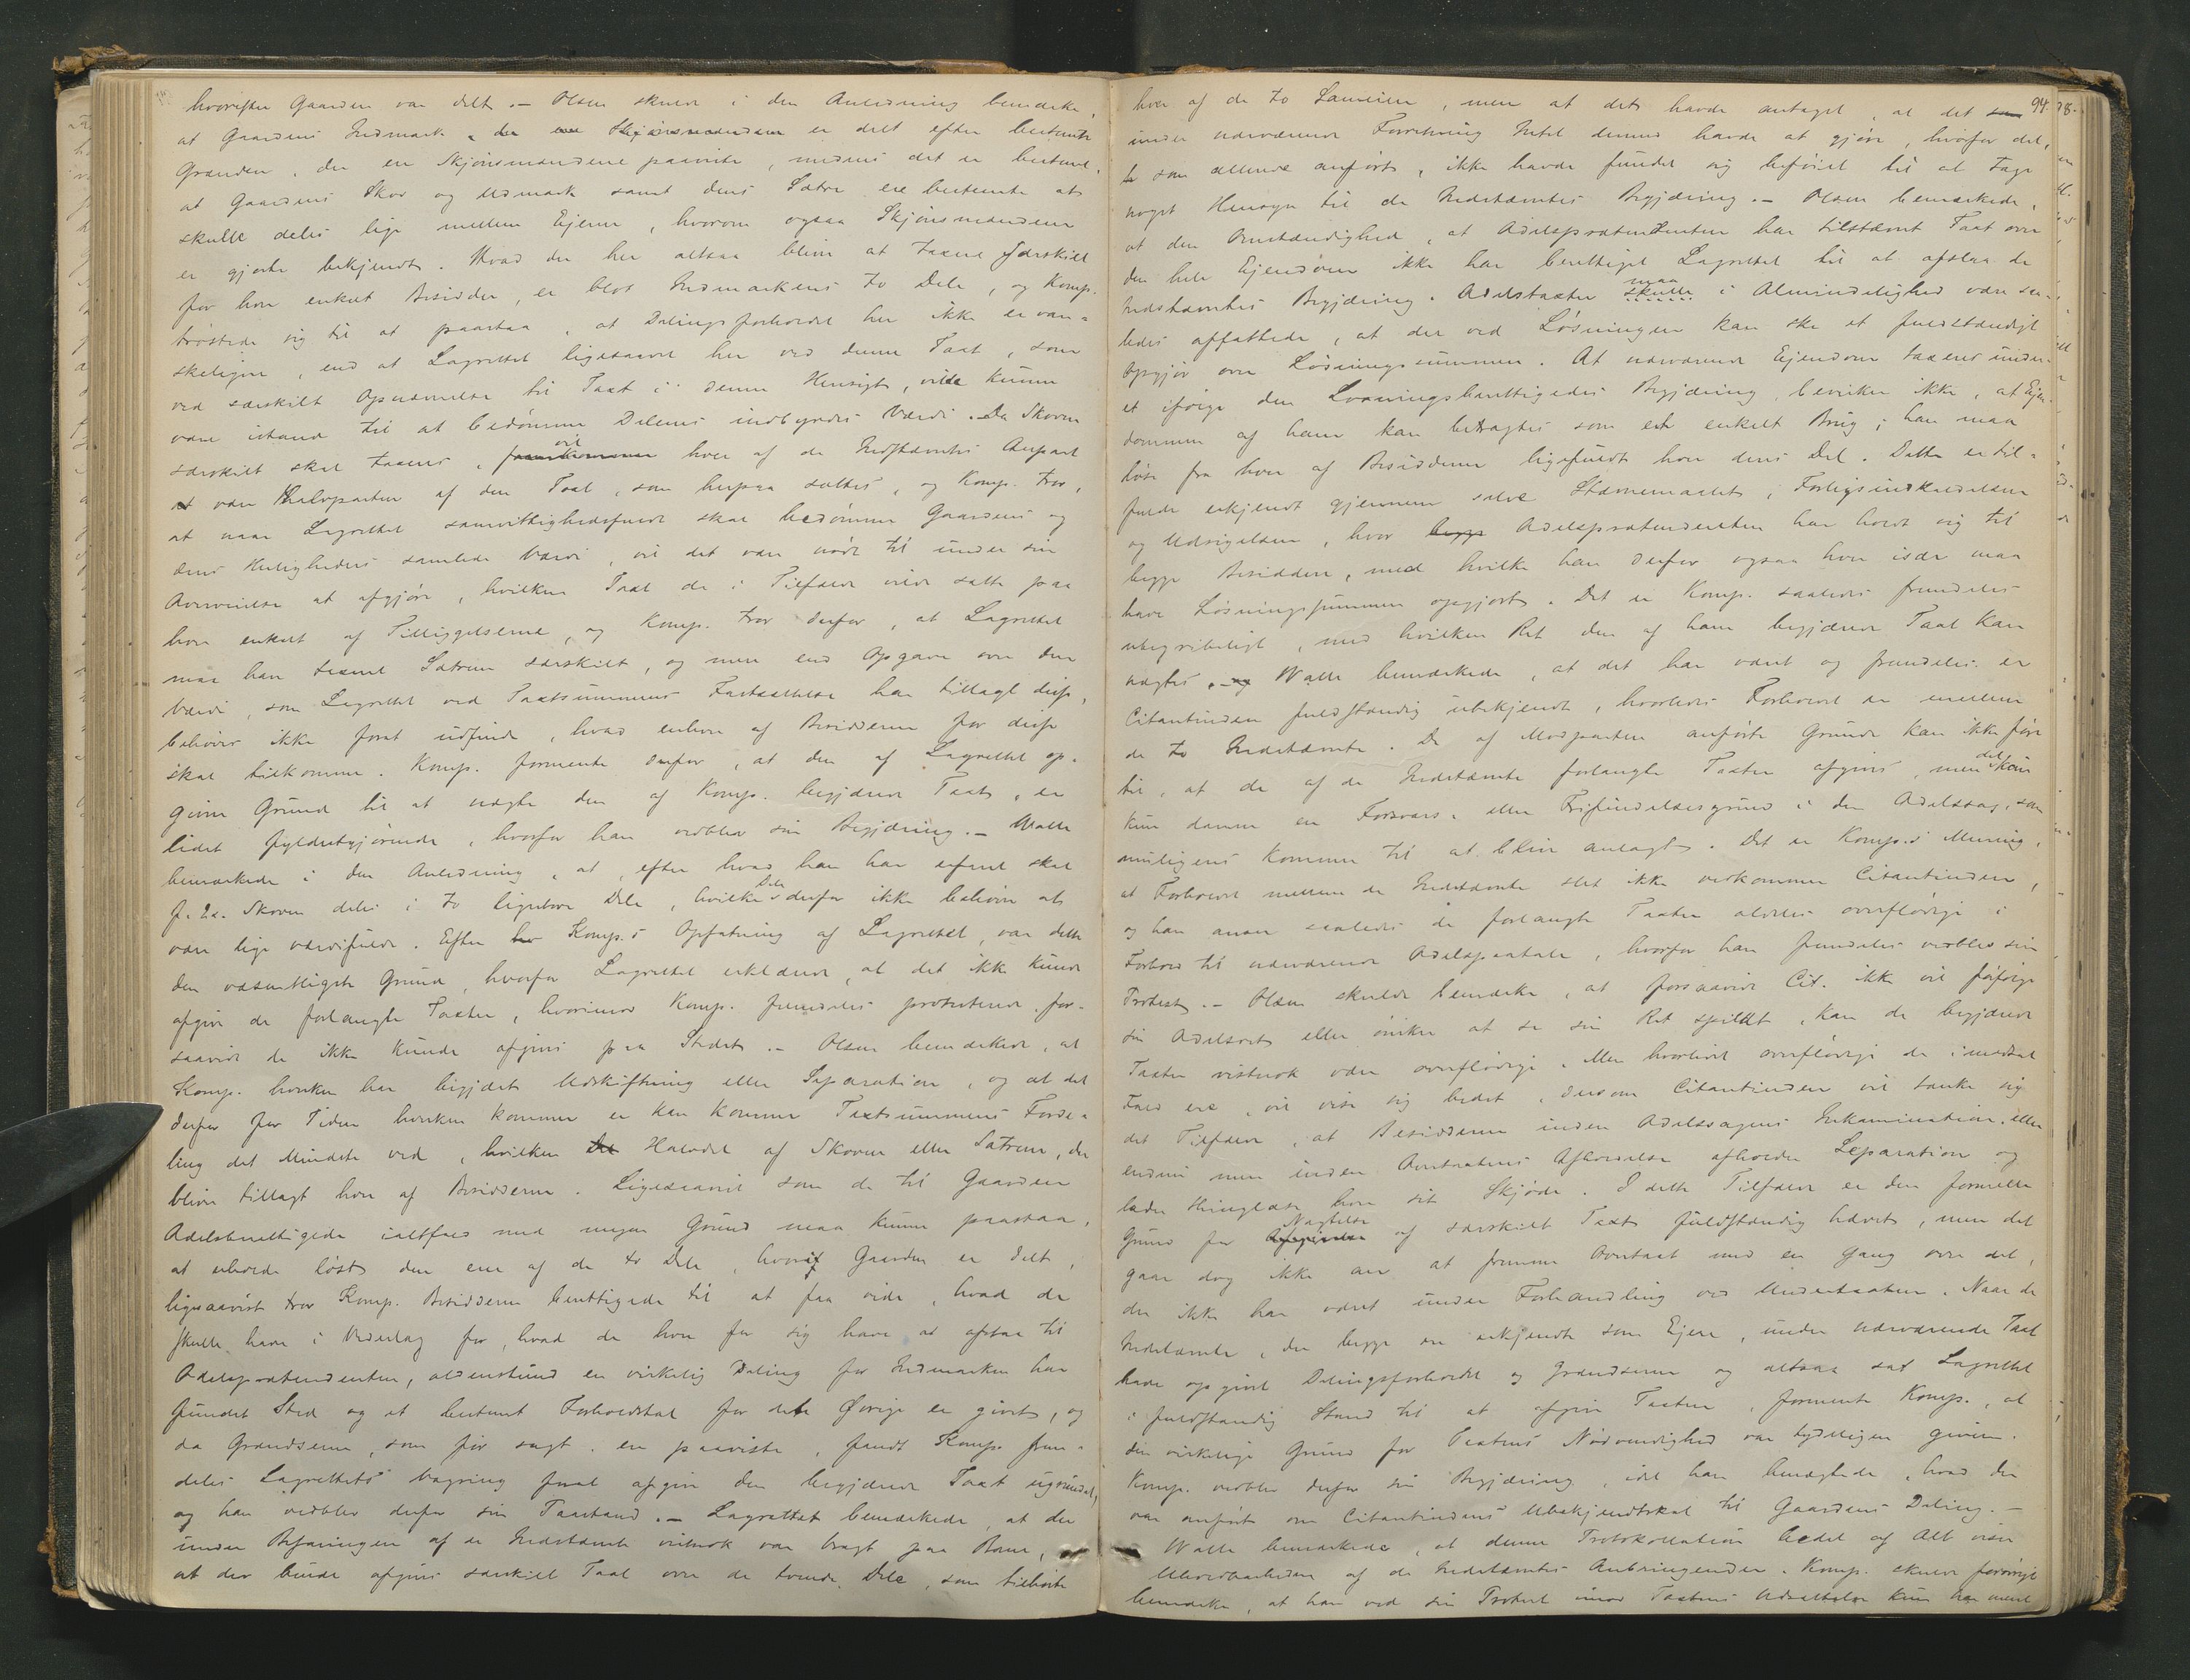 hvorefter Gaarden var delt. – Olsen skulde i den Anledning bemærke,
at Gaardens Indmark, er delt efter bestemte
Grændser, der ere Skjønsmændene paaviste, medens det er bestemt,
at Gaardens Skov og Udmark samt dens Sætre ere bestemte at
skulle deles lige mellem Ejerne, hvorom ogsaa Skjønsmændene
er gjorte bekjendt. Hvad der her altsaa bliver at taxere særskilt
for hver enkelt Besidder, er blot Indmarkens to Dele, og Komp.
trøstede sig til at paastaa, at Delingsforholdet her ikke er van-
skeligere, end at Lagrettet ligesaavel her ved denne Taxt, som
ved særskilt Opnævnelse til Taxt i denne Hensigt, vilde kunne
være istand til at bedømme Delenes indbyrdes Værdi. Da Skoven
særskilt skal taxeres, vil hver af de Indstævntes Anpart
være Halvparten af den Taxt, som herpaa sættes, og Komp. tror,
at naar Lagrettet samvittighedsfuldt skal bedømme Gaardens og
dens Herligheders samlede Værdi, vil det være nødt til under sin
Overveielse at afgjøre, hvilken Taxt de i Tilfælde vilde sætte paa
hver enkelt af Tilliggelserne, og Komp. tror derfor, at Lagrettet
maa have taxeret Sætrene særskilt, og mere end Opgave over den
Værdi, som Lagrettet ved Taxtsummens Fastsættelse har tillagt disse,
behøves ikke forat udfinde, hvad enhver af Besidderne for disse
skal tilkomme. Komp. formente derfor, at den af Lagrettet op-
givne Grund til at nægte den af Komp. begjærede Taxt, er
lidet fyldestgjørende, hvorfor han vedblev sin Begjæring. – Walle
bemærkede i den Anledning, at, efter hvad han har erfaret skal
f. Ex. Skoven deles i to ligestore Dele, hvilke Dele derfor ikke behøver at
være lige værdifulde. Efter Komp.s Opfatning af Lagrettet, var dette
den væsentligste Grund, hvorfor Lagrettet erklærede, at det ikke kunde
afgive de forlangte Taxter, hvorimod Komp. fremdeles protesterede, for-
saavidt de ikke kunde afgives paa Stedet. – Olsen bemærkede, at
Komp. hverken har begjært Udskiftning eller Separation, og at det
derfor for Tiden hverken kommer er kan komme Taxtsummens Forde-
ling det Mindste ved, hvilken Halvdel af Skoven eller Sætrene, der
bliver tillagt hver af Besidderne. Ligesaavel som de til Gaarden
Odelsberettigede ialtfald med megen Grund maa kunne paastaa,
at erholde løst den ene af de to Dele, hvori Gaarden er delt,
ligesaavist tror Komp. Besidderne berettigede til at faa vide, hvad de
skulle have i Vederlag for, hvad de hver for sig have at afstaa til
Odelsprætendenten, aldenstund en virkelig Deling for Indmarken har
fundet Sted og et bestemt Forholdstal for dets Øvrige er givet, og
da Grændserne, som før sagt, ere paaviste, fandt Komp. frem-
deles Lagrettets Vægring forat afgive den begjærede Taxt ugrundet,
og han vedblev derfor sin Paastand. – Lagrettet bemærkede, at der
under Befaringen af de Indstævnte vistnok var bragt paa Bane,
at der burde afgives særskilt Taxt over de tvende Dele, som tilhørte
94.
hver af de to Lauritser, men at det havde antaget, at det
under nærværende Forretning Intet dermed havde at gjøre, hvorfor det,
som allerede anført, ikke havde fundet sig beføiet til at tage
noget Hensyn til de Indstævntes Begjæring. – Olsen bemærkede,
at den Omstændighed, at Odelsprætendenten har tilstævnt Taxt over
den hele Ejendom ikke har berettiget Lagrettet til at afslaa de
Indstævntes Begjæring. Odelstaxter maa i Almindelighed være saa-
ledes affattede, at der ved Løsningen kan ske et fuldstændigt
Opgjør over Løsningssummen. At nærværende Ejendom taxeres under
et ifølge den Løsningsberettigedes Begjæring, bevirker ikke, at Ejen-
dommen af ham kan betragtes som et enkelt Brug; han maa
løse fra hver af Besidderne ligefuldt hver dens Del. Dette er til-
fulde erkjendt gjennem selve Stævnemaalet, Forligsindkaldelsen
og Udsigelsen, hvor Odelsprætendenten har holdt sig til
begge Besiddere, med hvilke han derfor ogsaa hver især maa
have Løsningssummen opgjort. Det er Komp. saaledes fremdeles
ubegribeligt, med hvilken Ret den af ham begjærede Taxt kan
nægtes. – Walle bemærkede, at det har været og fremdeles er
Citantinden fuldstændig ubekjendt, hvorledes Forholdet er mellem
de to Indstævnte. De af Modparten anførte Grunde kan ikke føre
til, at de af de Indstævnte forlangte Taxter afgives, men det kan
kun danne en Forsvars- eller Frifindelsesgrund i den Odelssag, som
muligens kommer til at blive anlagt. Det er Komp.s Mening,
at Forholdet mellem de Indstævnte slet ikke vedkommer Citantinden,
og han anser saaledes de forlangte Taxter aldeles overflødige i
Forhold til nærværende Odelspaatale, hvorfor han fremdeles vedblev sin
Protest. – Olsen skulde bemærke, at forsaavidt Cit. ikke vil forfølge
sin Odelsret eller ønsker at se sin Ret spildt, kan de begjærede
Taxter vistnok være overflødige. Men hvorvidt overflødige de i modsat
Fald ere, vil vise sig bedst, dersom Citantinden vil tænke sig
det Tilfælde, at Besidderne inden Odelssagens Inkamination, eller
endnu mere inden Overtaxtens Afholdelse afholder Separation og
lader thinglæse hver sit Skjøde. I dette Tilfælde er den formelle
Grund for Nægtelse af særskilt Taxt fuldstændig hævet, men det
gaar dog ikke an at fremme Overtaxt med en Gang over det,
der ikke har været under Forhandling ved Undertaxten. Naar de
Indstævnte, der begge ere erkjendte som Ejere, under nærværende Taxt
have opgivet Delingsforholdet og Grændserne og altsaa sat Lagrettet
i fuldstændig Stand til at afgive Taxten, formente Komp., at
den virkelige Grund for Taxtens Nødvendighed var tydeligen given.
Komp. vedblev derfor sin Begjæring, idet han benægtede, hvad der
var anført om Citantindens Ubekjendtskab til Gaardens Deling. –
Walle bemærkede, at denne Protokollation bedst af Alt viser
Uholdbarheden af de Indstævntes Anbringender. Komp. skulde forøvrigt
bemærke, at han ved sin Protest imod Taxtens Udsættelse kun har ment